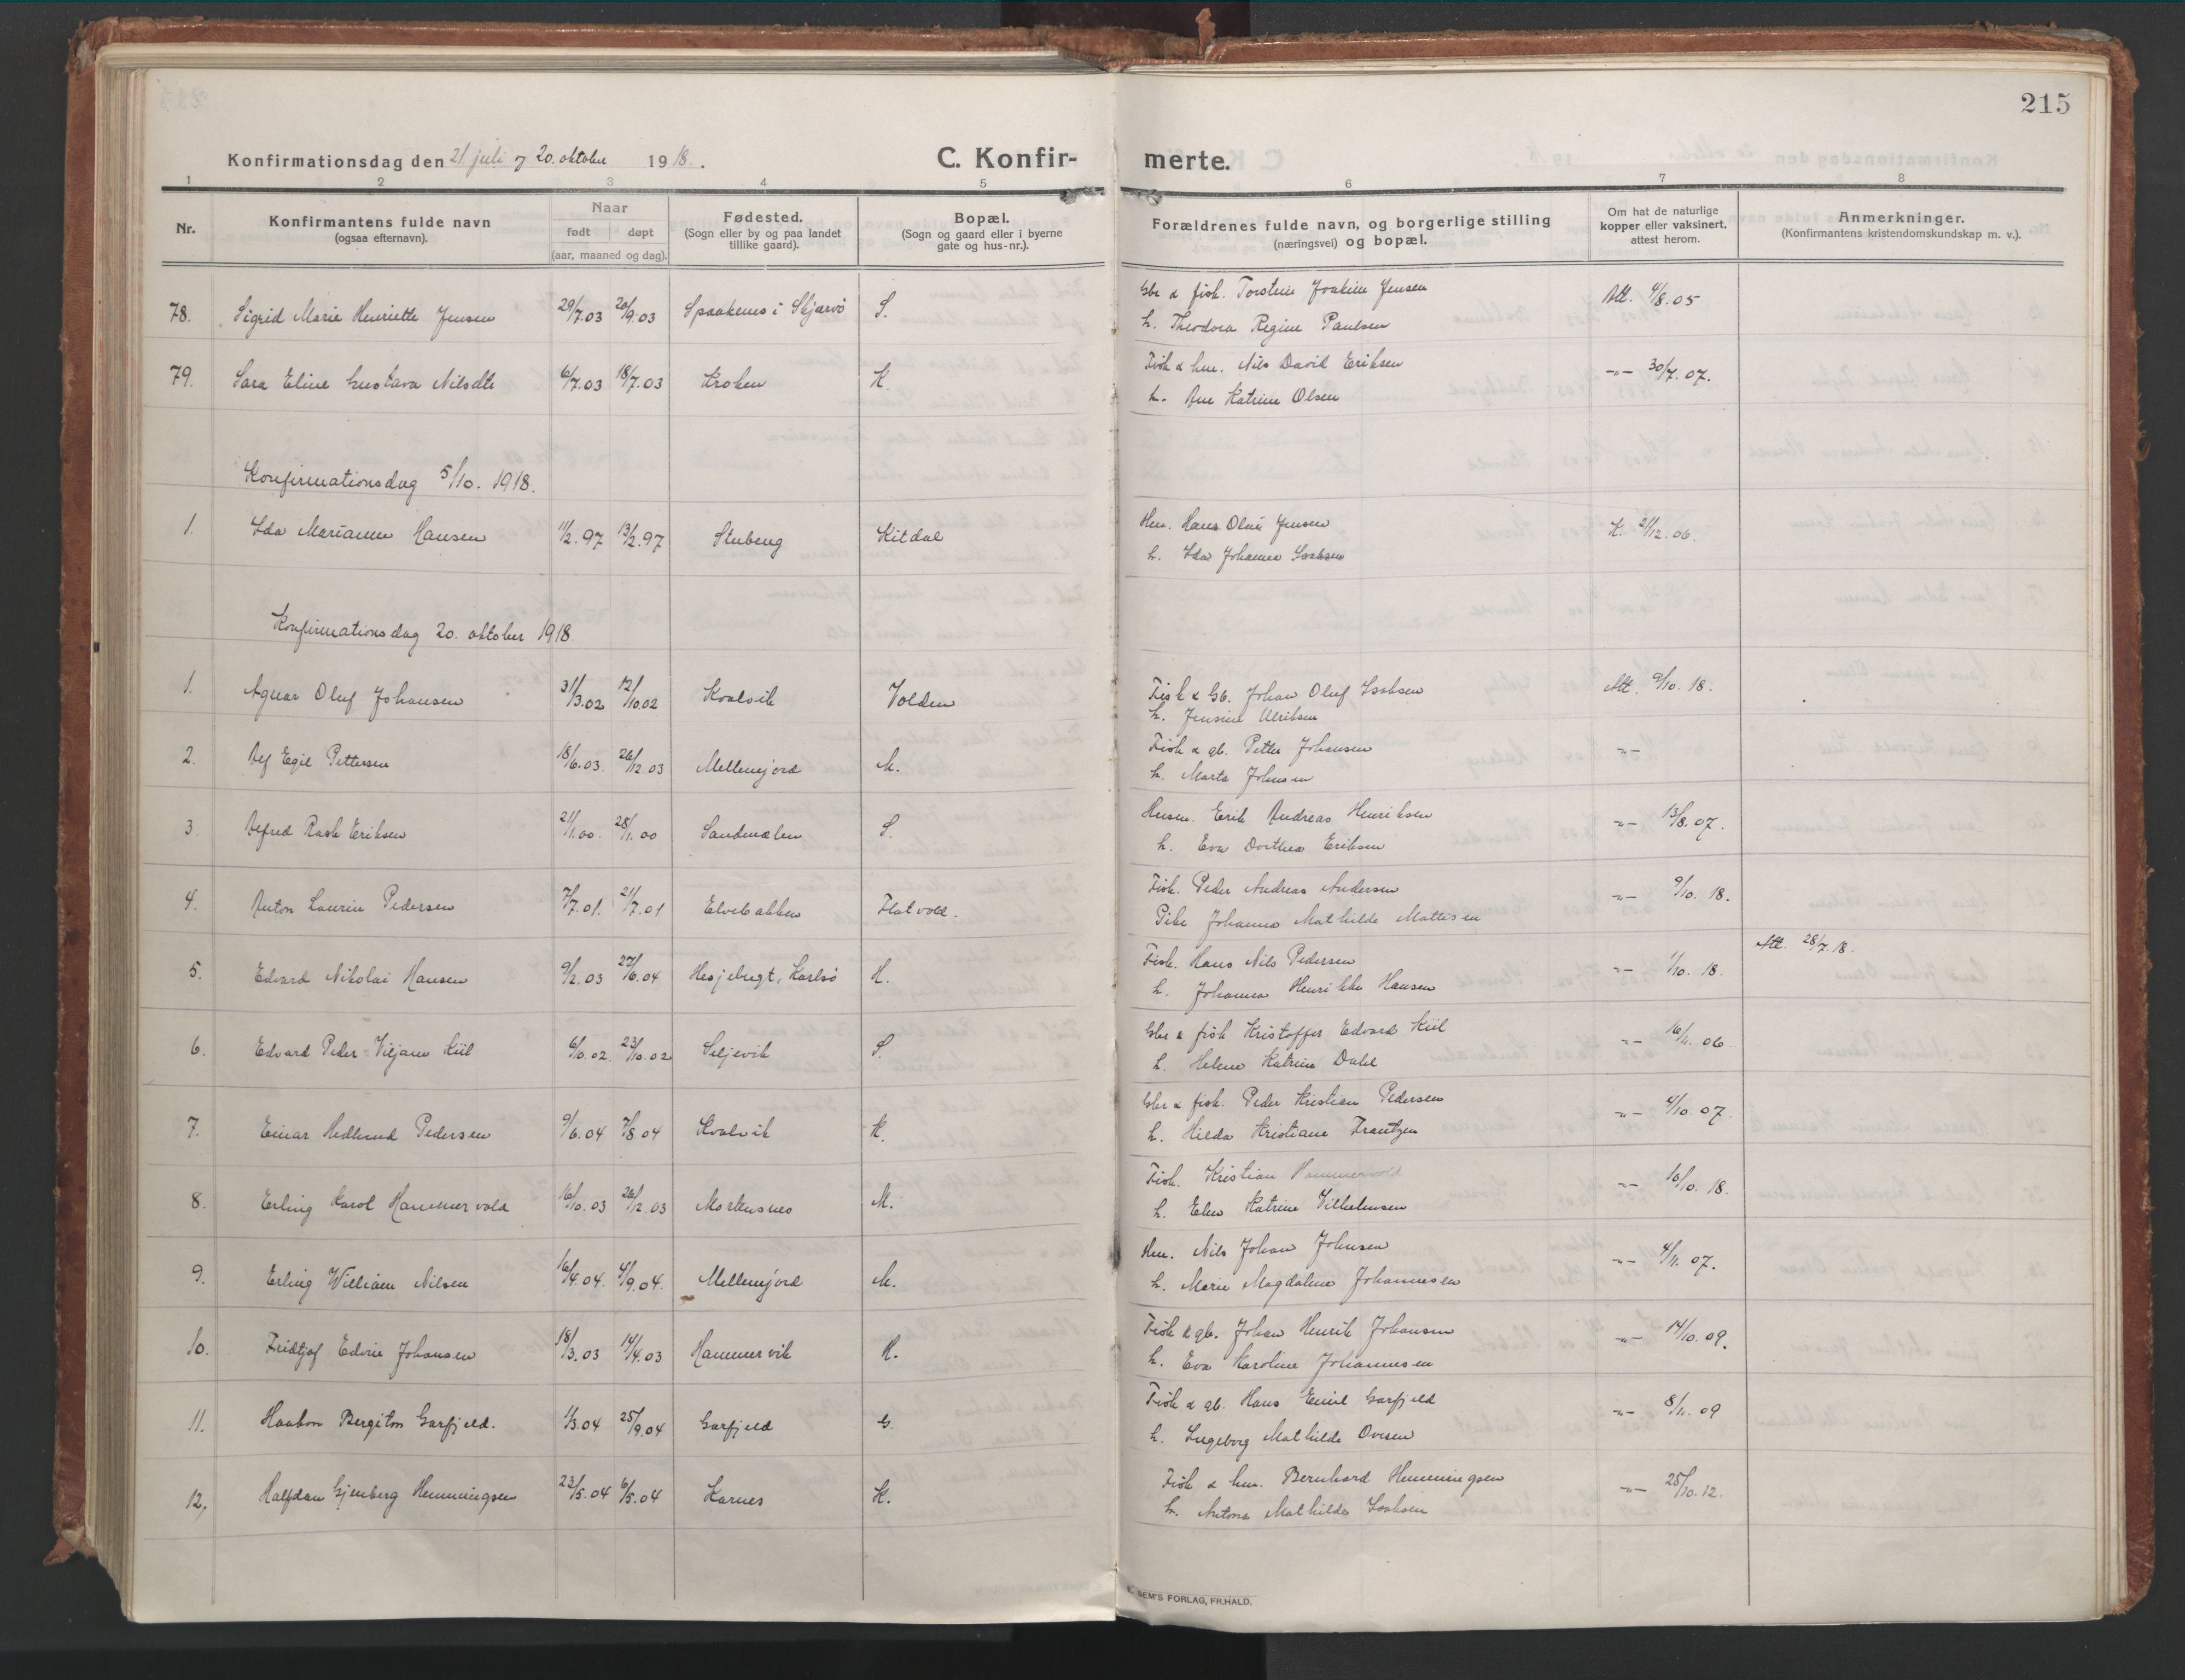 215
Konfirmationsdag den 21. juli og 20. oktober 1918. C. Konfir-merte.
1 2 3 4 5 6 7 8
Nr.
Konfirmantens fulde navn
(ogsaa efternavn).
Naar
født døpt
(aar, maaned og dag).
Fødested.
(Sogn eller by og paa landet
tillike gaard).
Bopæl.
(Sogn og gaard eller i byerne
gate og hus-nr.).
Forældrenes fulde navn, og borgerlige stilling
(næringsvei) og bopæl.
Om hat de naturlige
kopper eller vaksinert,
attest herom.
Anmerkninger.
(Konfirmantens kristendomskundskap m. v.).
78. Sigrid Marie Henriette Jensen 29/7.03 20/9.03 Spaakenes i Skjervö S. Gbr & fisk. Torstein Joakim Jensen Att. 4/8.05
h. Theodora Regine Paulsen
79. Sara Eline Gustava Nilsdtr 6/7.03 18/7.03 Kroken K. Fisk & hm. Nils David Eriksen -"- 30/7.07.
h. Ane Katrine Olsen
Konfirmationsdag 5/10. 1918.
1. Ida Marianne Hansen 11/2.97 13/2.97 Stubeng Kitdal Hm. Hans Olai Jensen K. 21/12.06.
h. Ida Johanna Isaksen
Konfirmationsdag 20. oktober 1918
1. Agnar Oluf Johansen 31/3.02 12/10.02 Kvalvik Volden Fisk & Gb. Johan Oluf Isaksen Att. 9/10.18.
h. Jensine Ulriksen
2. Alf Egil Pettersen 18/6.03. 26/12.03 Mellemjord M. Fisk & gb. Petter Johansen -"-
h. Marta Johnsen
3. Alfred Rask Eriksen 21/1.00. 28/1.00 Sandmælen S. Husm. Erik Andreas Henriksen -"- 13/8.07.
h. Eva Dorthea Eriksen
4. Anton Laurin Pedersen 7/7.01. 21/7.01 Elvebakken Flatvold. Fisk. Peder Andreas Andersen -"- 9/10.18.
Pike Johanna Mathilde Mattisen
5. Edvard Nikolai Hansen 9/2.03 27/6.04 Hesjebugt, Karlsö H. Fisk. Hans Nils Pedersen -"- 1/10.18. Att. 28/7.18.
h. Johanna Henrikke Hansen
6. Edvard Peder Viljam Kiil 6/10.02. 23/10.02 Seljevik S. Gbr & fisk Kristoffer Edvard Kiil -"- 16/11.06
h. Helene Katrine Dahl
7. Einar Hedlund Pedersen 9/6.04 7/8.04 Kvalvik K. Gbr & fisk. Peder Kristian Pedersen -"- 4/10.07.
h. Hilda Kristiane Frantzen
8. Erling Karol Hammervold 16/10.03 26/12.03 Mortensnes M. Fisk. Kristian Hammervold -"- 16/10.18.
h. Elen Katrine Vilhelmsen
9. Erling William Nilsen 16/4.04. 4/9.04. Mellemjord M. Hm. Nils Johan Johnsen -"- 4/11.07.
h. Marie Magdalena Johannesen
10. Fridtjof Edvin Johansen 18/3.03 14/4.03 Hammervik H. Fisk & gb. Johan Henrik Johansen -"- 14/10.09.
h. Eva Karoline Johannesen
11. Haakon Bergiton Garfjeld. 1/3.04 25/9.04 Garfjeld G. Fisk & gb. Hans Emil Garfjeld -"- 8/11.09
h. Ingeborg Mathilde Ovesen
12. Halfdan Gjenberg Hemmingsen 23/5.04 6/5.04 Karnes K. Fisk & hm. Bernhard Hemmingsen -"- 25/10.12.
h. Antona Mathilda Isaksen
SEM'S FORLAG, FR.HALD.